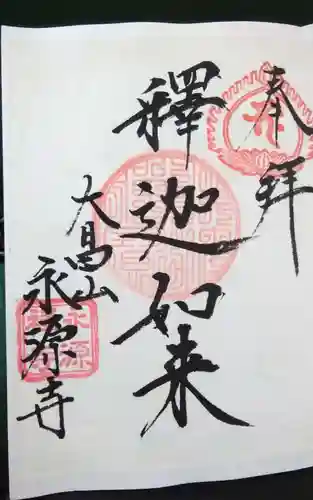 奉拜
釋迦如来
大昌山
永源寺